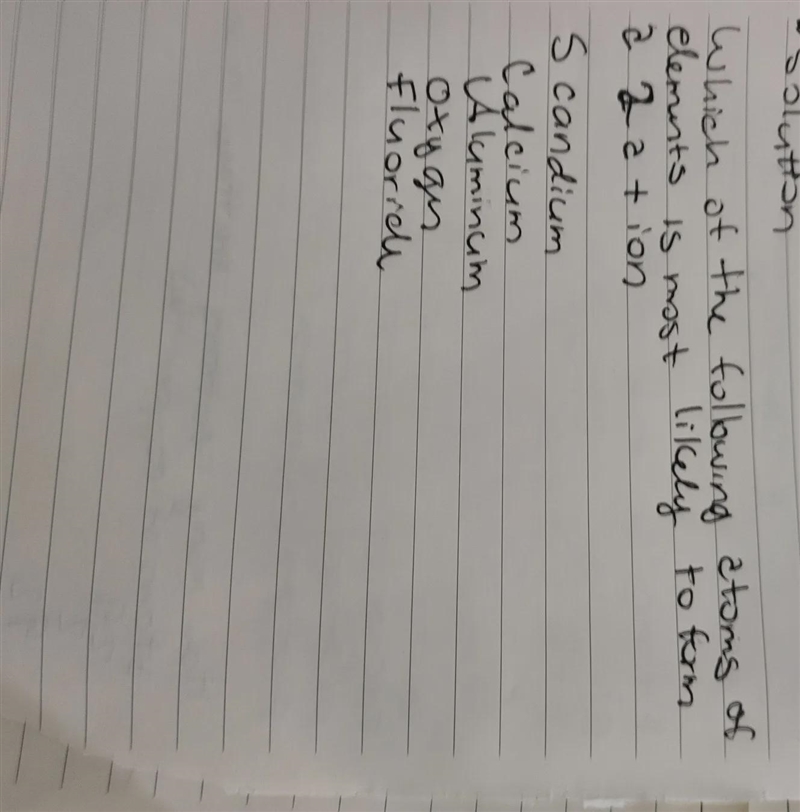 solution
Which of the following atoms of
elements is most likely to form
a 2 a + ion
Scandium
Calcium
Aluminum
Oxygen
Fluoride